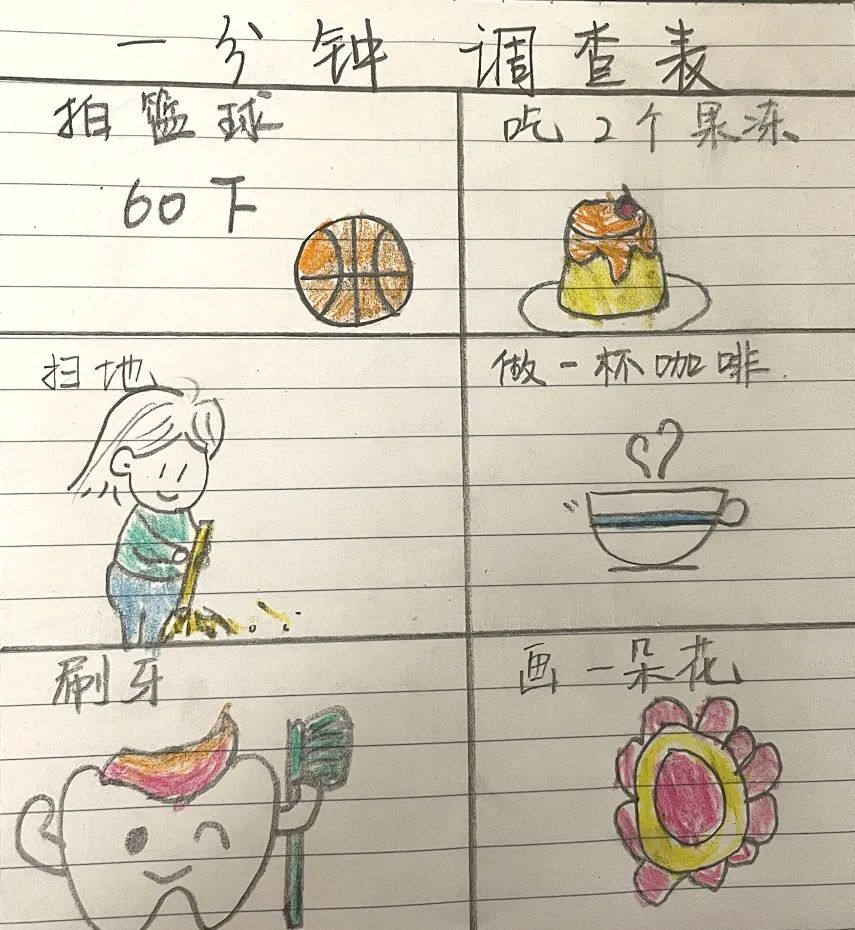 一分钟调查表
拍篮球
60下
吃2个果冻
扫地
做一杯咖啡
刷牙
画一朵花